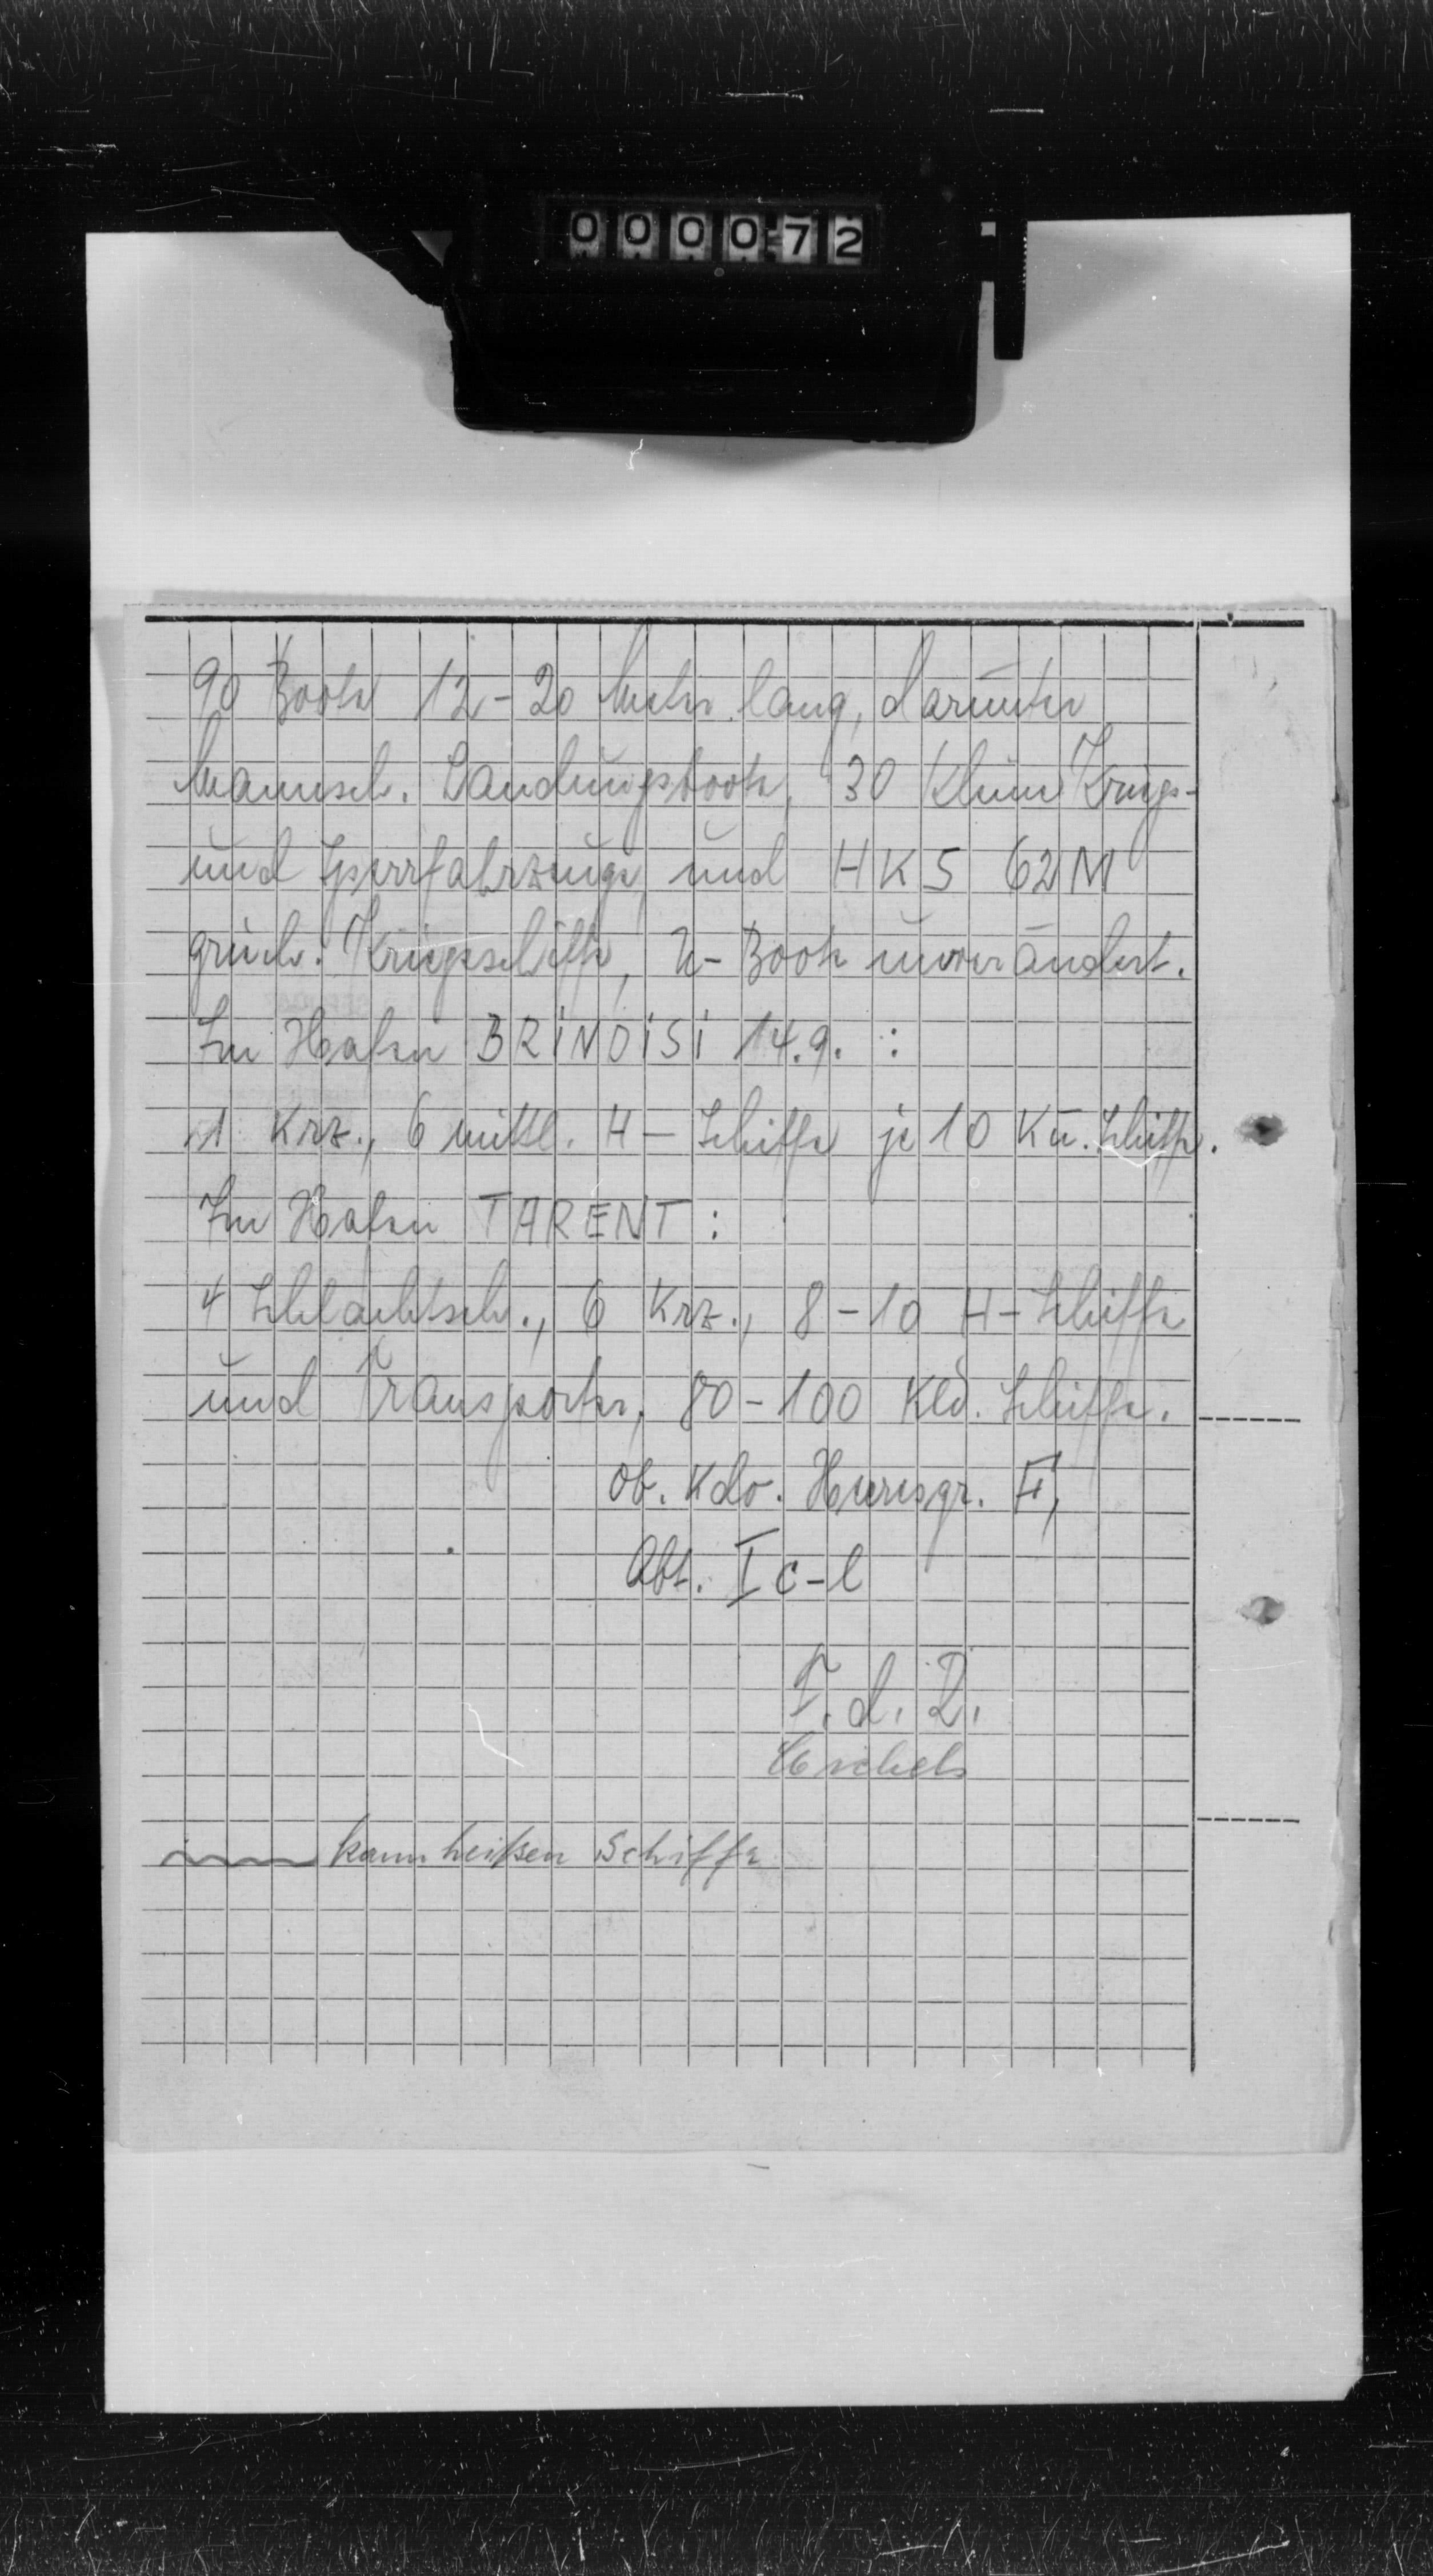 000072
90 Boote 12-20 Meter lang, darunter
Mannsch. Landungsboote, 30 kleine Kriegs-
und Sperrfahrzeuge und HKS 62M
griech. Kriegsschiffe, U-Boote unverändert.
Im Hafen BRINDISI 14.9. :
1 Krz., 6 mittl. H-Schiffe je 10 Kü. Schiffe.
Im Hafen TARENT :
4 Schlachtsch., 6 Krz., 8-10 H-Schiffe
und Transporter, 80-100 Schiffe.
Ob. Kdo. Heeresgr. F,
Abt. Ic-l
F.d.R.
kann heißen Schiffe